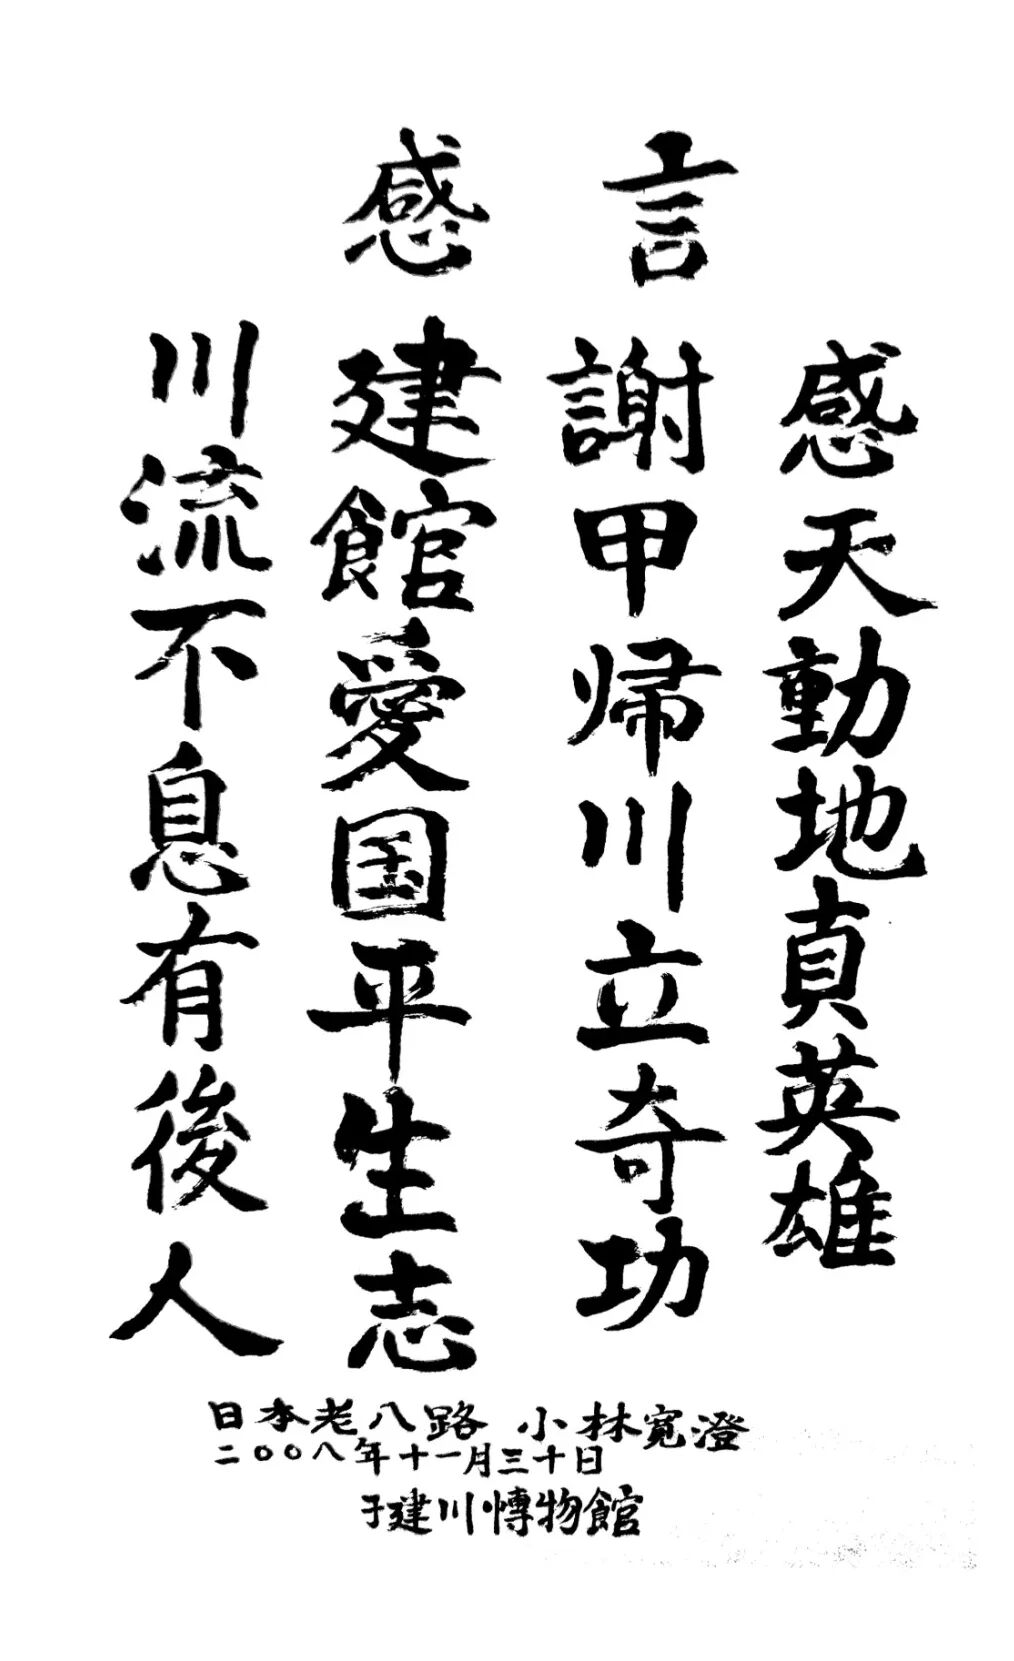 感言
感天動地真英雄
謝甲帰川立奇功
建館愛国平生志
川流不息有後人
日本老八路 小林寛澄
二〇〇八年十一月三十日
于建川博物館